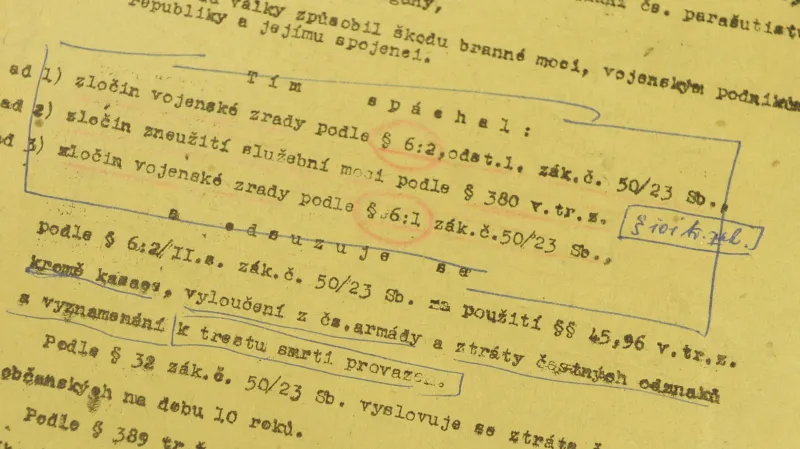 čs. parašutistů
války způsobil škodu branné moci, vojenským podnikům
republiky a jejímu spojenci.
Tím spáchal:
ad 1) zločin vojenské zrady podle § 6:2,odst.1. zák.č. 50/23 Sb.,
ad 2) zločin zneužití služební moci podle § 380 v.tr.z.
ad 3) zločin vojenské zrady podle § 6:1 zák.č.50/23 Sb.,
a odsuzuje se
podle § 6:2/II.s. zák.č. 50/23 Sb. za použití §§ 45,96 v.tr.z.
kromě kasace, vyloučení z čs.armády a ztráty čestných odznaků
a vyznamenání k trestu smrti provazem.
Podle § 32 zák.č. 50/23 Sb. vyslovuje se ztráta
občanských na dobu 10 roků.
Podle § 389 tr.